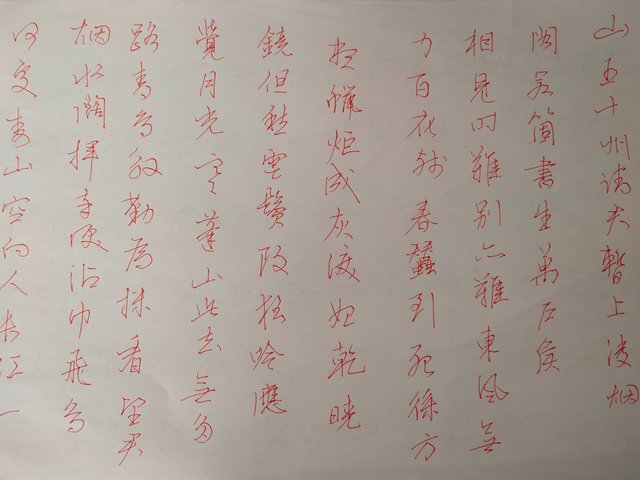 山五十州請君暫上凌烟
閣若箇書生萬户侯
相見时難別亦難東風無
力百花残春蠶到死絲方
尽蠟炬成灰淚始乾曉
鏡但愁雲鬢改夜吟應
覺月光寒蓬山此去無多
路青鳥殷勤為探看望君
烟水闊揮手淚沾巾飛鳥
何處青山空向人長江一